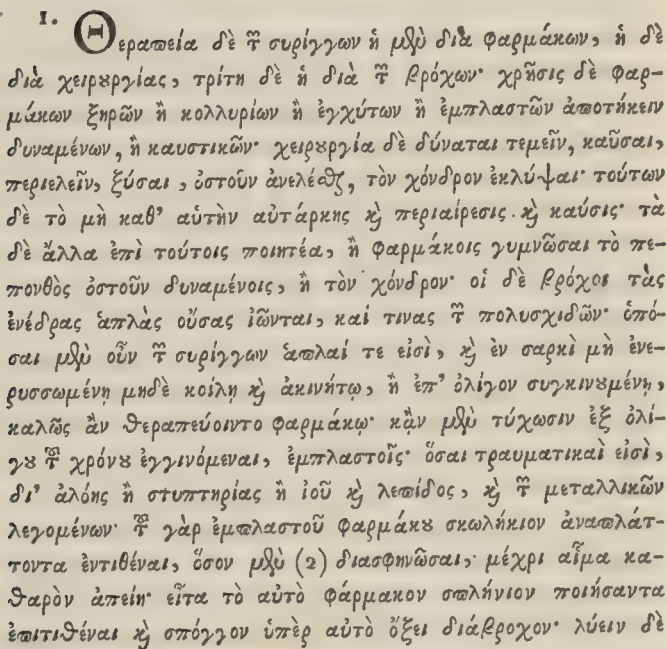 1. Θεραπεία δὲ τῶν συρίγγων ἡ μὲν διὰ φαρμάκων, ἡ δὲ
διὰ χειρουργίας, τρίτη δὲ ἡ διὰ τῶν βρόχων· χρῆσις δὲ φαρ-
μάκων ξηρῶν ἢ κολλυρίων ἢ ἐγχύτων ἢ ἐμπλαστῶν ἀποτήκειν
δυναμένων, ἢ καυστικῶν· χειρουργία δὲ δύναται τεμεῖν, καῦσαι,
περιελεῖν, ξύσαι, ὀστοῦν ἀνελέσθαι, τὸν χόνδρον ἐκλύψαι· τούτων
δὲ τὸ μὴ καθ' αὑτὴν αὐτάρκης καὶ περιαίρεσις. καὶ καύσις· τὰ
δὲ ἄλλα ἐπὶ τούτοις ποιητέα, ἢ φαρμάκοις γυμνῶσαι τὸ πε-
πονθὸς ὀστοῦν δυναμένοις, ἢ τὸν χόνδρον· οἱ δὲ βρόχοι τὰς
ἐνέδρας ἁπλὰς οὔσας ἰῶνται, καί τινας τῶν πολυσχιδῶν· ὁπό-
σαι μὲν οὖν τῶν συρίγγων ἁπλαί τε εἰσὶ, καὶ ἐν σαρκὶ μὴ ἐνε-
ρυσσωμένη μηδὲ κοίλη καὶ ἀκινήτῳ, ἢ ἐπ' ὀλίγον συγκινουμένη,
καλῶς ἂν θεραπεύοιντο φαρμάκῳ· κᾂν μὲν τύχωσιν ἐξ ὀλί-
γου τοῦ χρόνου ἐγγινόμεναι, ἐμπλαστοῖς· ὅσαι τραυματικαὶ εἰσὶ,
δι' ἀλόης ἢ στυπτηρίας ἢ ἰοῦ καὶ λεπίδος, καὶ τῶν μεταλλικῶν
λεγομένων· τοῦ γὰρ ἐμπλαστοῦ φαρμάκου σκωλήκιον ἀναπλάτ-
τοντα ἐντιθέναι, ὅσον μὲν (2) διασφηνῶσαι, μέχρι αἷμα κα-
θαρὸν ἀπείη· εἶτα τὸ αὐτὸ φάρμακον σπλήνιον ποιήσαντα
ἐπιτιθέναι καὶ σπόγγον ὑπὲρ αὐτὸ ὄξει διάβροχον· λύειν δὲ